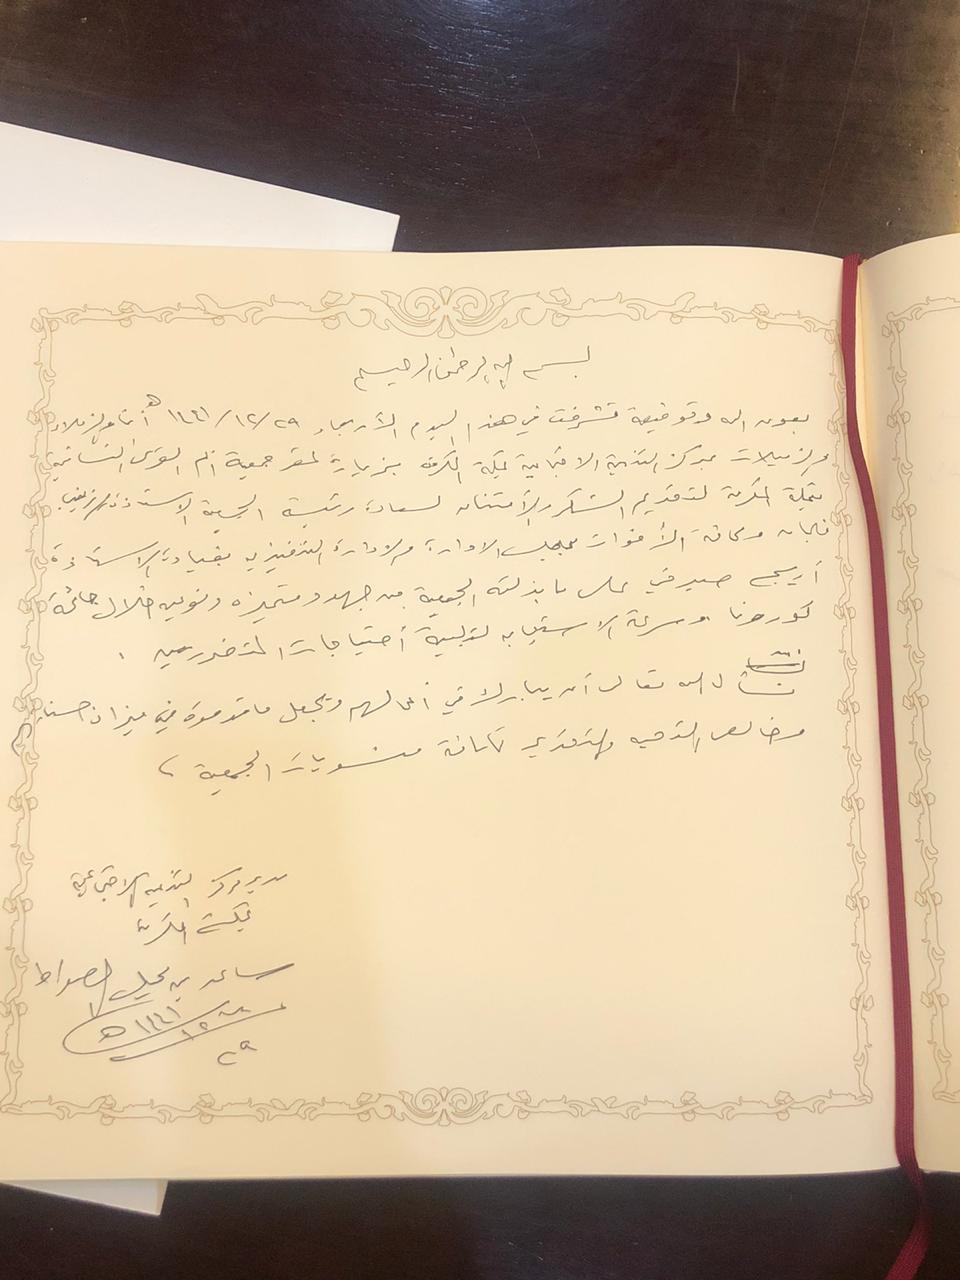 بسم الله الرحمن الرحيم
بعون الله وتوفيقه تشرفت في هذا اليوم الأربعاء ٢٩/١٢/١٤٤١هـ أنا والزملاء
والزميلات بمركز التنمية الاجتماعية بمكة المكرمة بزيارة لمقر جمعية أم القرى النسائية
بمكة المكرمة لتقديم الشكر والامتنان لسعادة رئيسة الجمعية الاستاذة
وكافة الأخوات بمجلس الادارة والادارة التنفيذية بقيادة الاستاذة
أريج صيرفي على ما بذلته الجمعية من جهود متميزه ونوعيه خلال جائحة
كورونا وسرعة الاستجابه لتلبية أحتياجات المتضررين .
لالله تعالى أن يبارك في أعمالهم ويجعل ما قدموة في ميزان حسناتهم
وخالص التحيه والتقدير لكافة منسوبات الجمعية ،
مدير مركز التنميه الاجتماعية
بمكة المكرمة
ساعد بن
١٤٤١هـ
١٢
٢٩